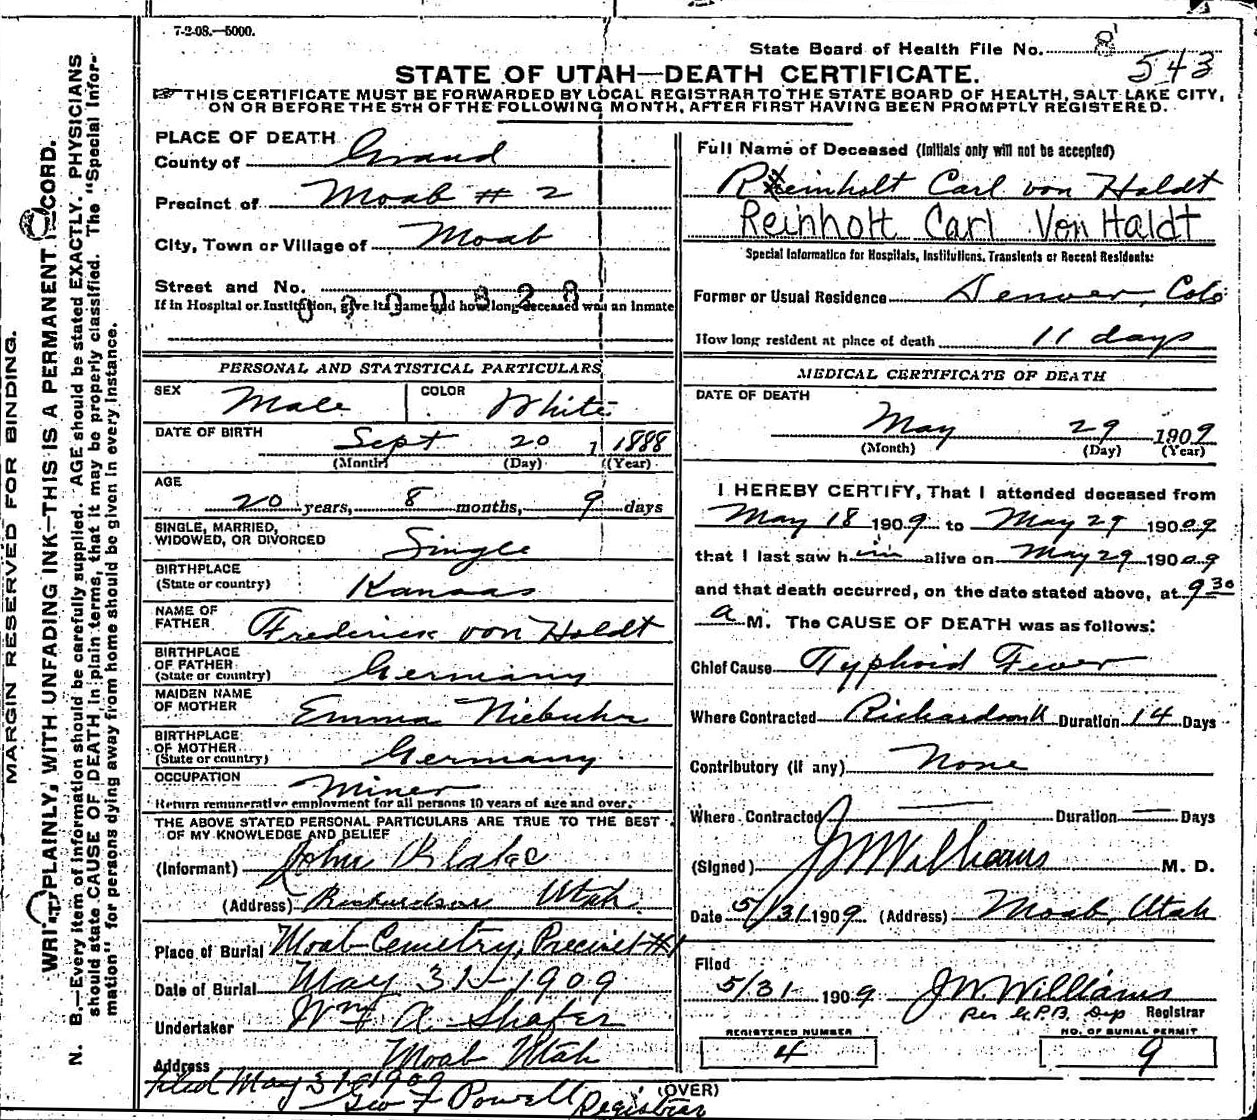 7-2-08.—5000.
State Board of Health File No. 8
543
STATE OF UTAH—DEATH CERTIFICATE.
THIS CERTIFICATE MUST BE FORWARDED BY LOCAL REGISTRAR TO THE STATE BOARD OF HEALTH, SALT LAKE CITY,
ON OR BEFORE THE 5TH OF THE FOLLOWING MONTH, AFTER FIRST HAVING BEEN PROMPTLY REGISTERED.
MARGIN RESERVED FOR BINDING.
WRITE PLAINLY, WITH UNFADING INK—THIS IS A PERMANENT RECORD.
N. B.—Every item of information should be carefully supplied. AGE should be stated EXACTLY. PHYSICIANS
should state CAUSE OF DEATH in plain terms, that it may be properly classified. The "Special Infor-
mation" for persons dying away from home should be given in every instance.
PLACE OF DEATH
County of Grand
Precinct of Moab # 2
City, Town or Village of Moab
Street and No.
If in Hospital or Institution, give its name and how long deceased was an inmate
0200328
PERSONAL AND STATISTICAL PARTICULARS
SEX Male COLOR White
DATE OF BIRTH Sept 20 1 1888
(Month) (Day) (Year)
AGE
20 years, 8 months, 9 days
SINGLE, MARRIED,
WIDOWED, OR DIVORCED Single
BIRTHPLACE
(State or country) Kansas
NAME OF
FATHER Frederick von Holdt
BIRTHPLACE
OF FATHER
(State or country) Germany
MAIDEN NAME
OF MOTHER Emma Niebuhr
BIRTHPLACE
OF MOTHER
(State or country) Germany
OCCUPATION Miner
Return remunerative employment for all persons 10 years of age and over.
THE ABOVE STATED PERSONAL PARTICULARS ARE TRUE TO THE BEST
OF MY KNOWLEDGE AND BELIEF
(Informant) John Blake
(Address) Richardson Utah
Place of Burial Moab Cemetry, Precinct #1
Date of Burial May 31 1909
Undertaker Wm A. Shafer
Address Moab Utah
Filed May 31 1909
Geo F Powell Registrar
Full Name of Deceased (Initials only will not be accepted)
Reinholt Carl von Holdt
Reinholt Carl Von Haldt
Special Information for Hospitals, Institutions, Transients or Recent Residents:
Former or Usual Residence Denver, Colo
How long resident at place of death 11 days
MEDICAL CERTIFICATE OF DEATH
DATE OF DEATH
May 29 1909
(Month) (Day) (Year)
I HEREBY CERTIFY, That I attended deceased from
May 18 1909 to May 29 19009
that I last saw him alive on May 29 19009
and that death occurred, on the date stated above, at 9 30
a M. The CAUSE OF DEATH was as follows:
Chief Cause Typhoid Fever
Where Contracted Duration 14 Days
Contributory (if any) None
Where Contracted — Duration — Days
(Signed) J W Williams M. D.
Date 5/31 1909 (Address) Moab, Utah
Filed
5/31 1909 J. W. Williams
Per G.P.B. Dep Registrar
REGISTERED NUMBER
4
NO. OF BURIAL PERMIT
9
(OVER)